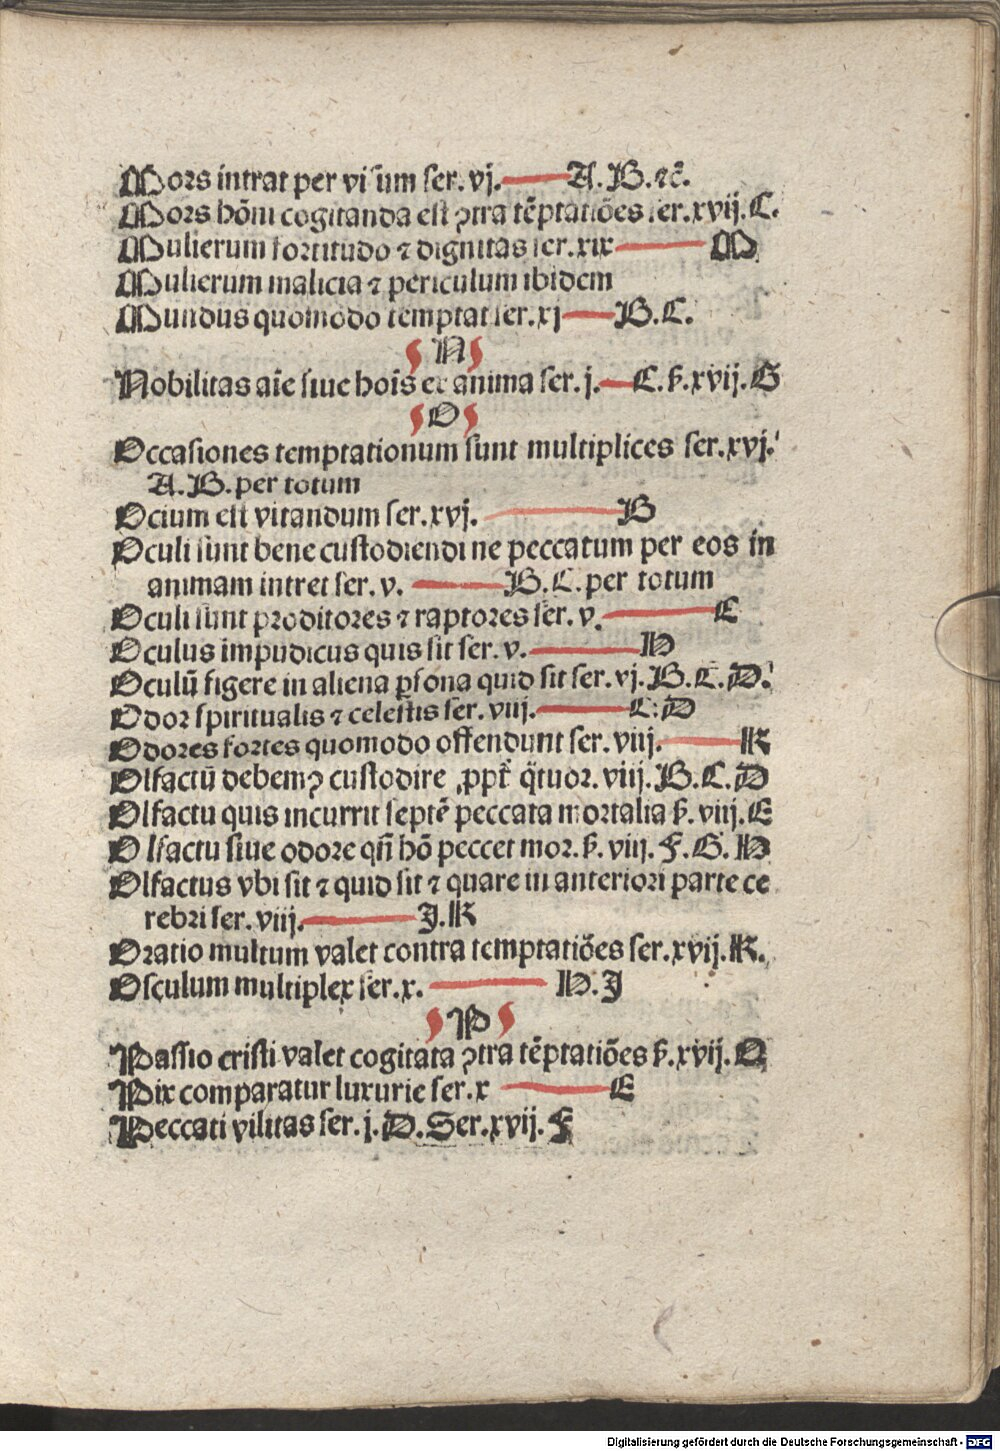 Mors intrat per visum ser. vj. A. B. ⁊c̄.
Mors hōni cogitanda est ꝯtra tēptatiōes ser. xvij. C.
Mulierum fortitudo ⁊ dignitas ser. xix M
Mulierum malicia ⁊ periculum ibidem
Mundus quomodo temptat ser. xj B. C.
N
Nobilitas aīe siue hoīs ex anima ser. j. C. ẞ. xvij. G
O
Occasiones temptationum sunt multiplices ser. xvj.
A. B. per totum
Ocium est vitandum ser. xvj. B
Oculi sunt bene custodiendi ne peccatum per eos in
animam intret ser. v. B. C. per totum
Oculi sunt proditores ⁊ raptores ser. v. E
Oculus impudicus quis sit ser. v. H
Oculū figere in aliena ꝑsona quid sit ser. vj. B. C. D.
Odor spiritualis ⁊ celestis ser. viij. C: D
Odores fortes quomodo offendunt ser. viij. K
Olfactū debemꝰ custodire ꝓpt̄ q̄tuor. viij. B. C. D
Olfactu quis incurrit septē peccata mortalia ẞ. viij. E
Olfactu siue odore qn̄ hō peccet mor. ẞ. viij. F. G. H
Olfactus vbi sit ⁊ quid sit ⁊ quare in anteriori parte ce
rebri ser. viij. J. K
Oratio multum valet contra temptatiōes ser. xvij. K.
Osculum multiplex ser. x. H. J
P
Passio cristi valet cogitata ꝯtra tēptatiōes ẞ. xvij. Q
Pix comparatur luxurie ser. x E
Peccati vilitas ser. j. D. Ser. xvij. F
Digitalisierung gefördert durch die Deutsche Forschungsgemeinschaft - DFG